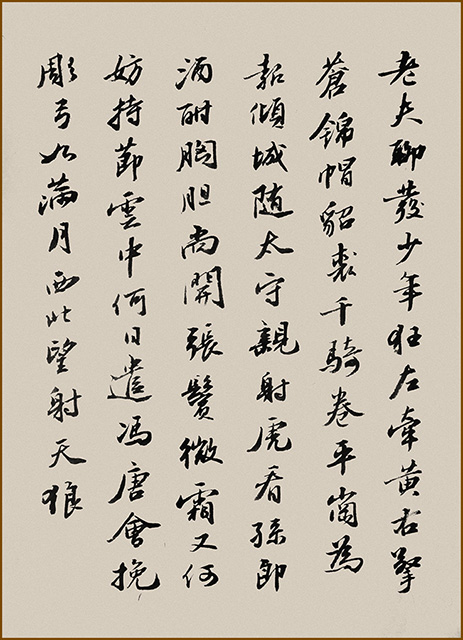 老夫聊發少年狂左牽黃右擎
蒼錦帽貂裘千騎卷平崗為
報傾城随太守親射虎看孫郎
酒酣胸胆尚開張鬢微霜又何
妨持節雲中何日遣馮唐會挽
彫弓如滿月西北望射天狼